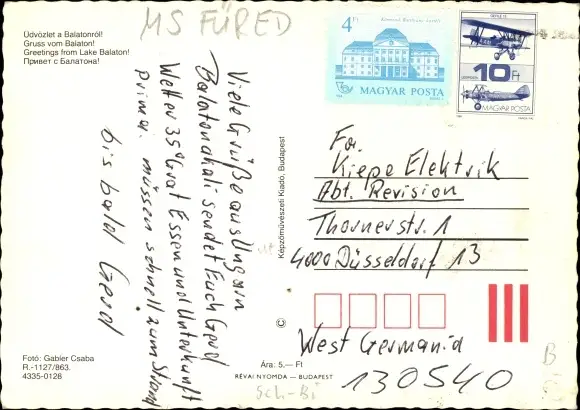 MS FÜRED
Üdvözlet a Balatonról!
Gruss vom Balaton!
Greetings from Lake Balaton!
Привет с Балатона!
Viele Grüße aus Ungarn
Balatonakali sendet Euch Gerd
Wetter 35° Grat Essen und Unterkunft
prima. müssen schnell zum Strand
bis bald Gerd
Fotó: Gabler Csaba
R.-1127/863.
4335-0128
Képzőművészeti Kiadó, Budapest
©
Ára: 5.— Ft
RÉVAI NYOMDA — BUDAPEST
Sch-Bi
4 Ft
MAGYAR POSTA
10 Ft
MAGYAR POSTA
Fa.
Kiepe Elektrik
Abt. Revision
Thornerstr. 1
4000 Düsseldorf 13
West Germania
130540
B